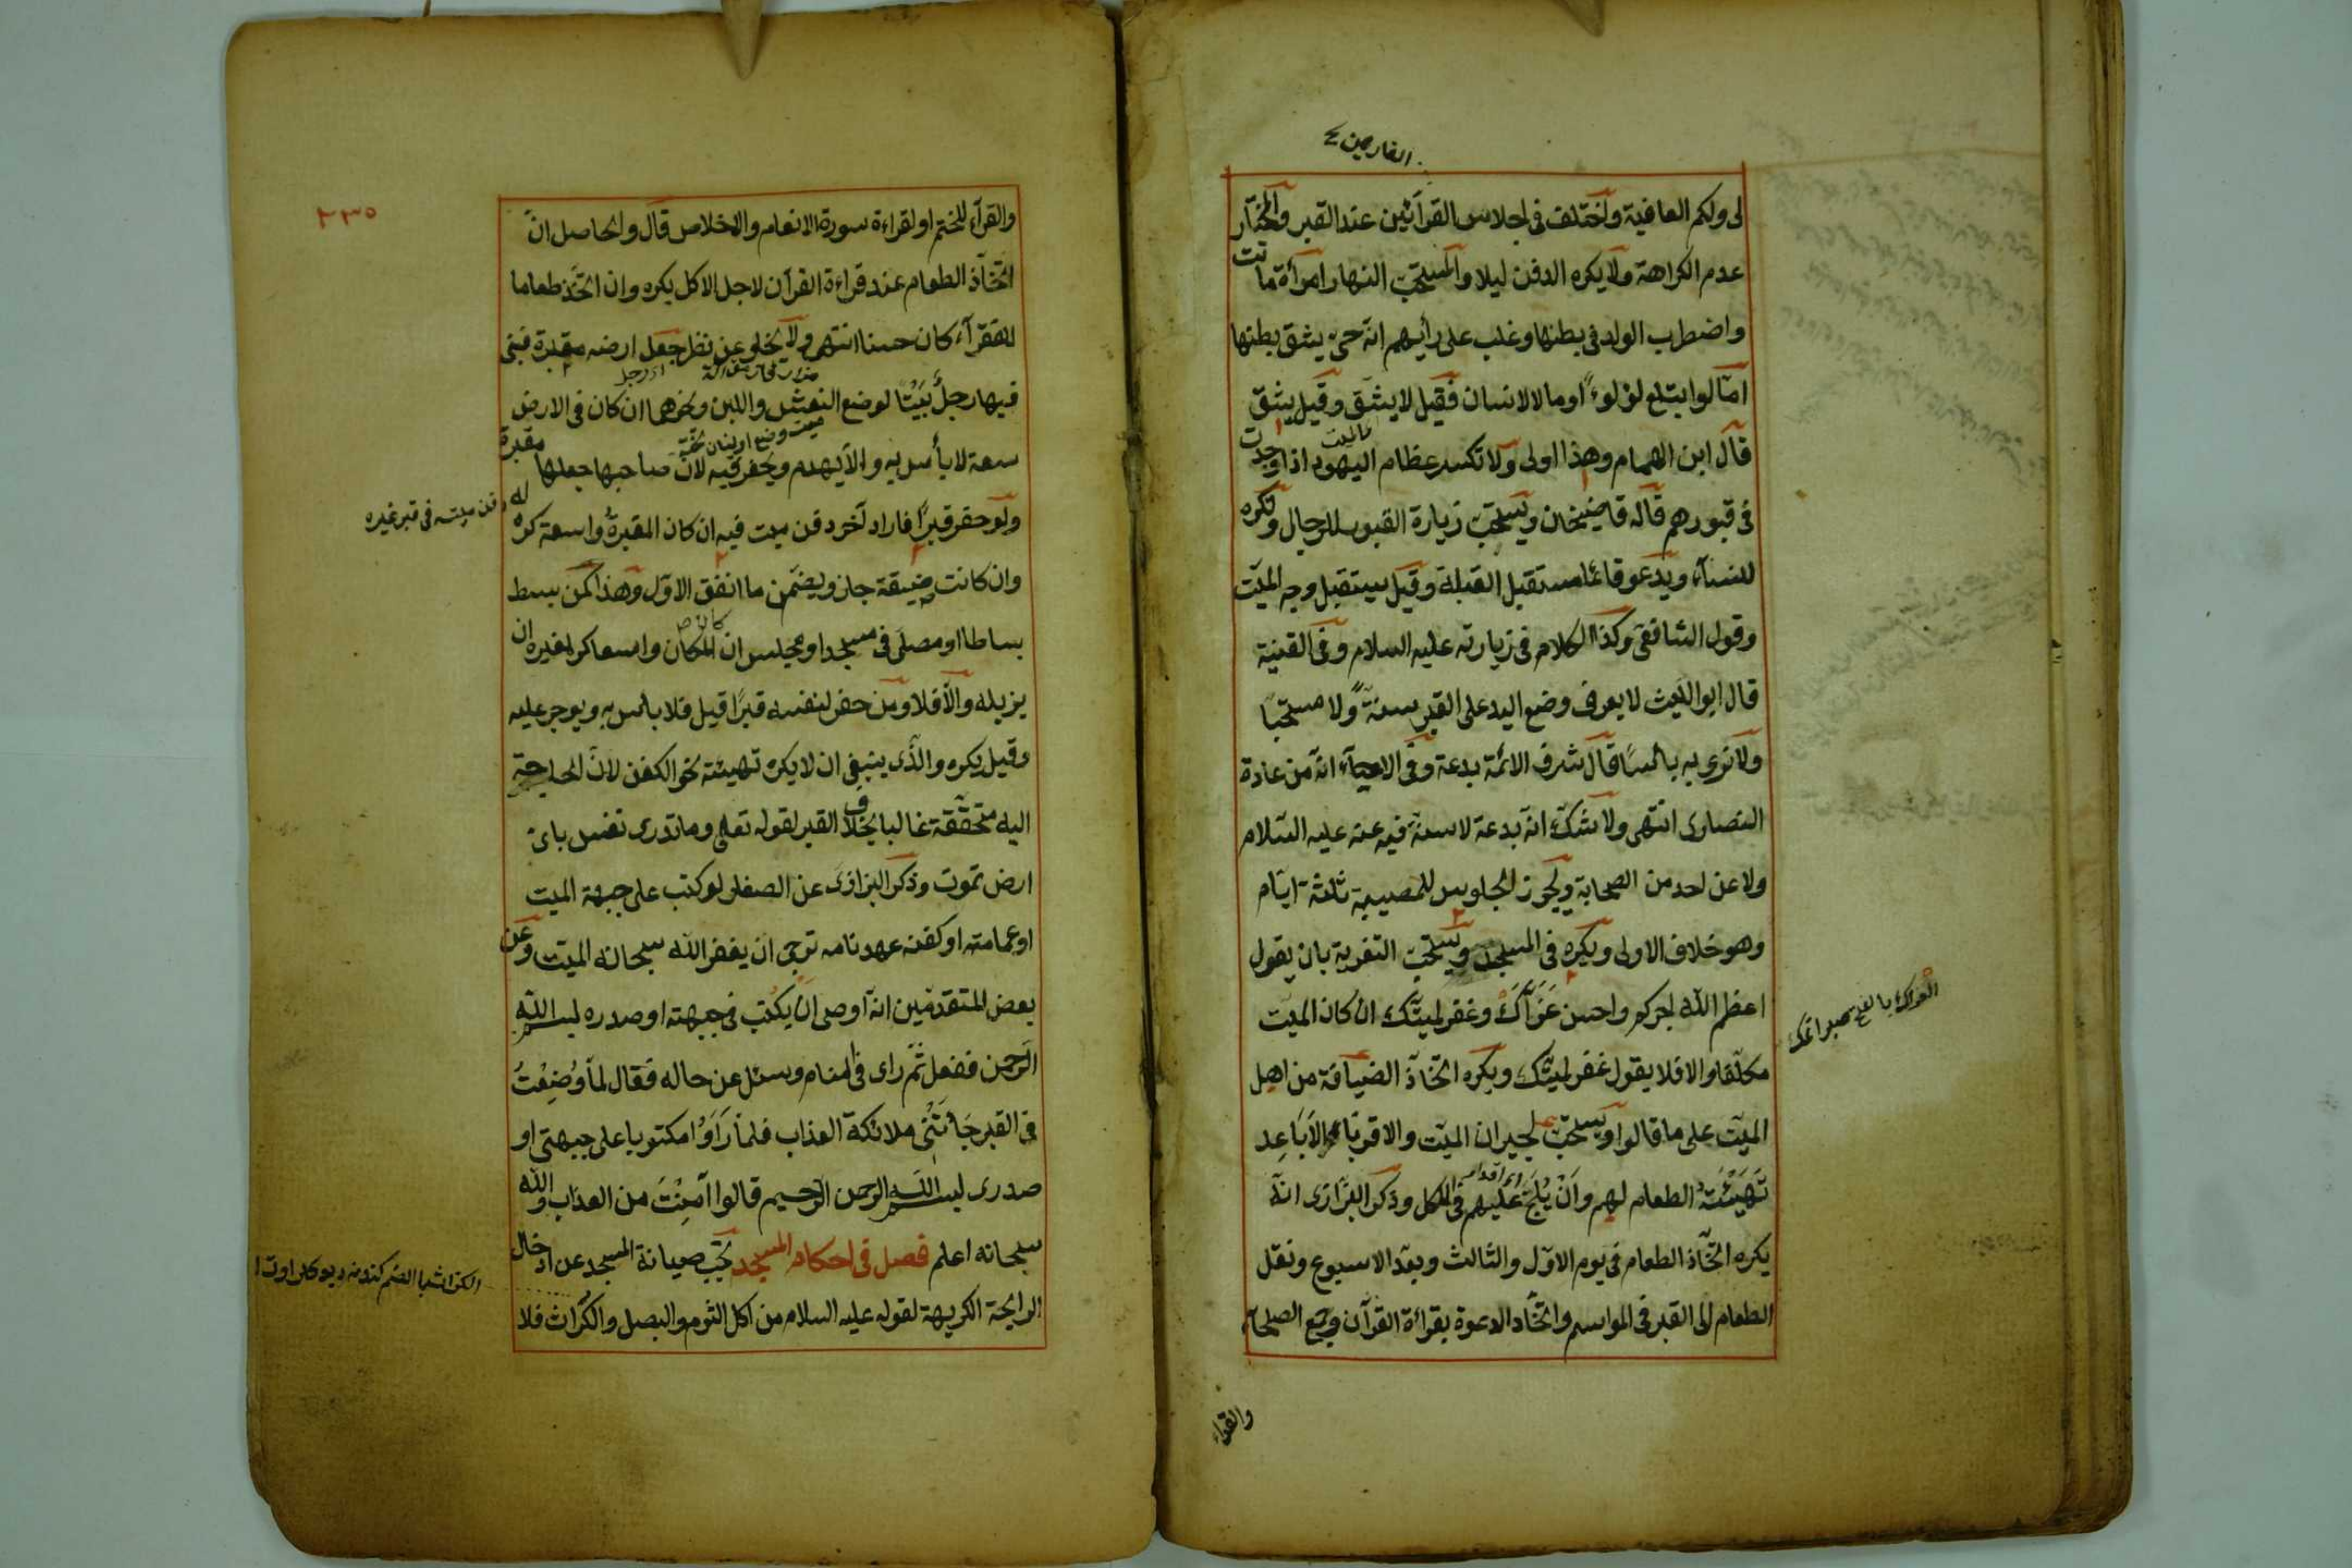 القارئين ع
لى ولكم العافية واختلف فى اجلاس القرآئين عند القبر والمختار
عدم الكراهة ولا يكره الدفن ليلا والمستحب النهار امرأة ماتت
واضطرب الولد فى بطنها وغلب على رأيهم انه حى يشق بطنها
امّا لو ابتلع لؤلوءً او مالا لانسان فقيل لا يشق وقيل يشق
قال ابن الهمام وهذا اولى ولا تكسر عظام اليهود اذا وجدت
فى قبورهم قاله قاضيخان ويستحب زيارة القبور للرجال وتكره
للنسآء ويدعو قائما مستقبل القبلة وقيل يستقبل وجه الميّت
وقول الشافعى وكذا الكلام فى زيارته عليه السلام وفى القنية
قال ابو الليث لا يعرف وضع اليد على القبر سنةً ولا مستحبّا
ولا نرى به بأسًا قال شرف الائمة بدعة وفى الاحيآء انه من عادة
النصارى انتهى ولا شك انه بدعة لا سنة فيه عنه عليه السّلام
ولا عن احد من الصحابة ويجوز الجلوس للمصيبة ثلثة ايّام
وهو خلاف الاولى ويكره فى المسجد ويستحب التعزية بان يقول
اعظم الله اجركم واحسن عَزَآَكَ وغفر لميّتك ان كان الميّت
مكلّفا والا فلا يقول غفر لميّتك ويكره اتخاذ الضيافة من اهل
الميّت على ما قالوا ويستحب لجيران الميّت والاقربآء الاَبَاعِد
تَهْيِئَةُ الطعام لهم واَنْ يُلَحَّ عَلَيهم فى الاكل وذكر البزّازى انه
يكره اتخاذ الطعام فى يوم الاوّل والثالث وبعد الاسبوع ونقل
الطعام الى القبر فى المواسم واتخاد الدعوة بقرائة القرآن وجمع الصلحآء
والقرآء
٢٣٥
والقرآء للختم او لقراءة سورة الانعام والاخلاص قال والحاصل انّ
اتخاذ الطعام عند قراءة القرآن لاجل الاكل يكره وان اتخذ طعاما
للفقرآء كان حسنا انتهى ولا يخلو عن نظر جعل ارضه مقبرة فبنى
فيها رجلٌ بَيْتًا لوضع النعش واللبن ونحوهما ان كان فى الارض
سعة لا بأس به والّا يهدم ويحفر فيه لانّ صاحبها جعلها مقبرة
ولو حفر قبرًا فاراد آخر دفن ميت فيه ان كان المقبرة واسعة كره
له دفن ميته فى قبر غيره
وان كانت ضيقة جاز ويضمن ما انفق الاوّل وهذا كمن بسط
بساطا او مصلّى فى مسجد او مجلس ان المكان واسعا كره لغيره ان
كان ص
يزيله والّا فلا ومن حفر لنفسه قبرًا قيل فلا بأس به ويوجر عليه
وقيل يكره والذى ينبغى ان لا يكره تهيئة نحو الكفن لانّ الحاجة
اليه متحققة غالبا بخلاف القبر لقوله تعالى وما تدرى نفس باىّ
ارض تموت وذكر البزازى عن الصفار لو كتب على جبهة الميت
او عمامته او كفنه عهدنامه ترجى ان يغفر الله سبحانه الميّت وعن
بعض المتقدّمين انه اوصى ان يكتب فى جبهته او صدره بسم الله
الرّحمن ففعل ثمّ راى فى المنام وسئل عن حاله فقال لمّا وُضِعْتُ
فى القبر جَائَتْنى ملائكة العذاب فلمّا رَاَوْا مكتوبا على جبهتى او
صدرى بسم الله الرحمن الرّحيم قالوا آمِنْتَ من العذاب والله
سبحانه اعلم فصل فى احكام المسجد تجب صيانة المسجد عن ادخال
الرايحة الكريهة لقوله عليه السلام من اكل الثوم والبصل والكُرّاث فلا